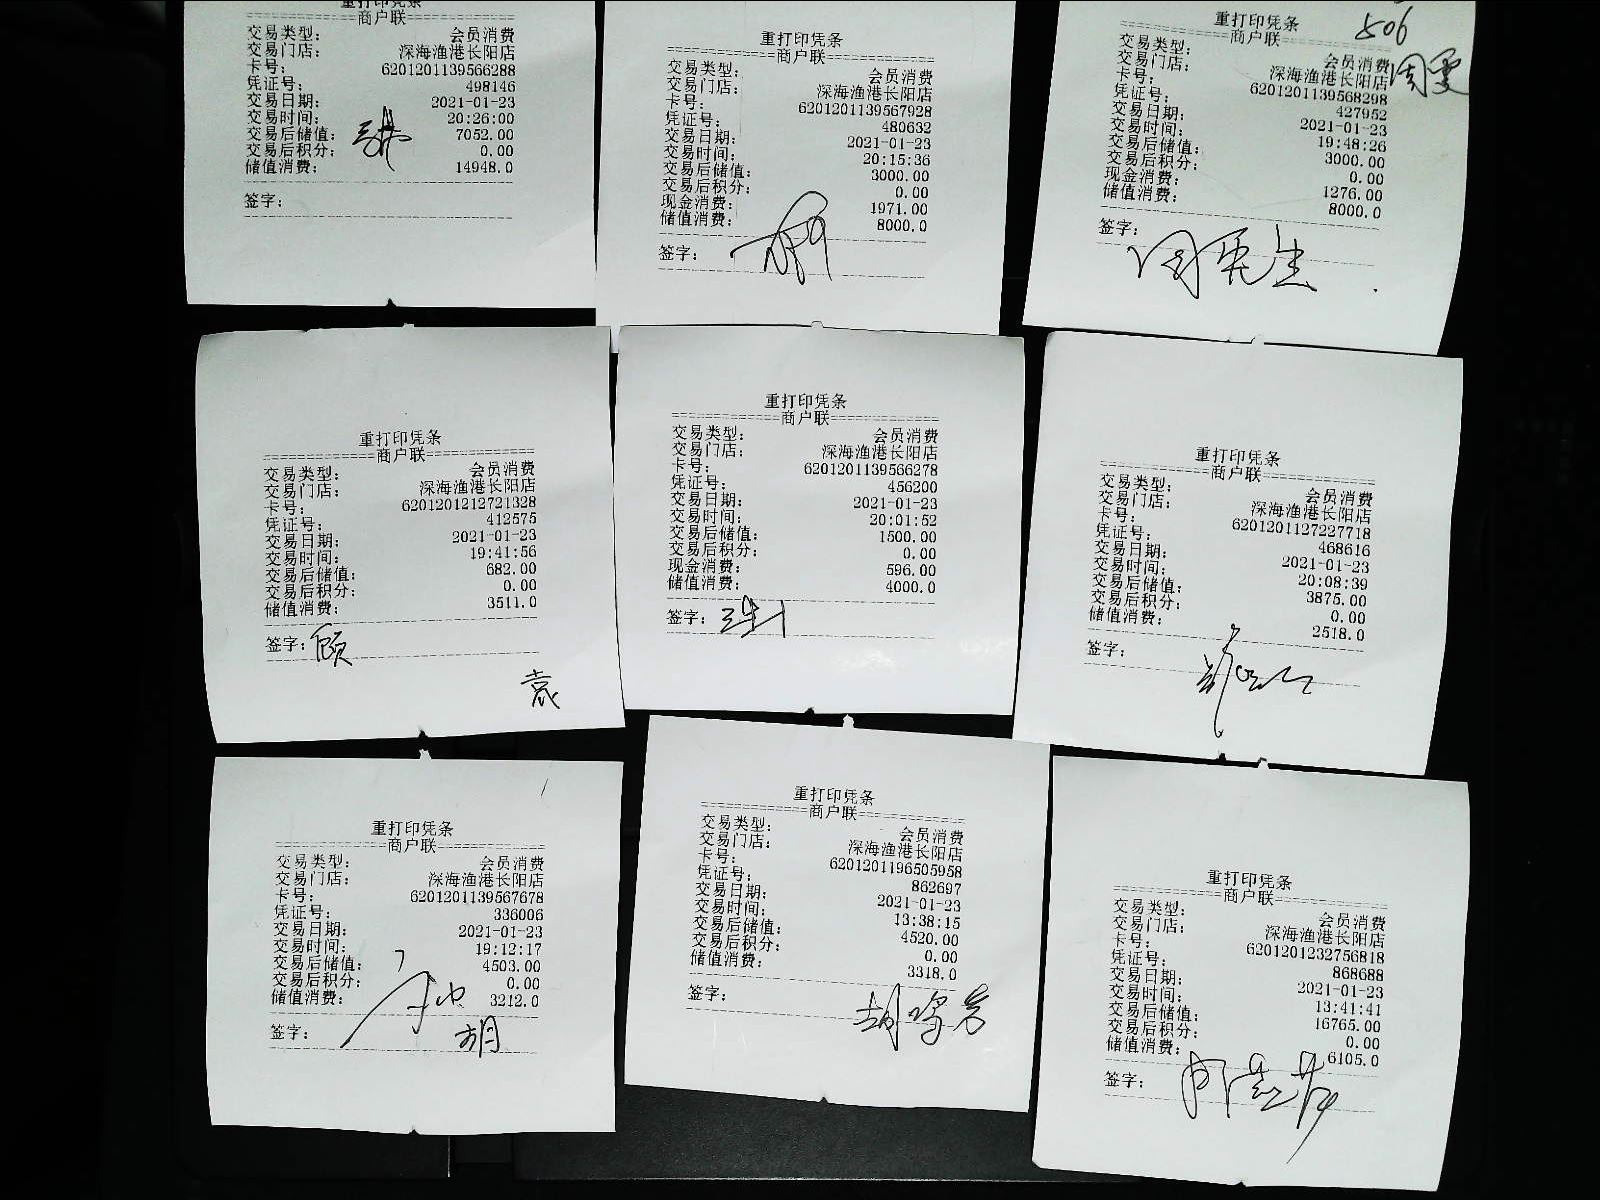 重打印凭条
商户联
交易类型： 会员消费
交易门店： 深海渔港长阳店
卡号： 6201201139566288
凭证号： 498146
交易日期： 2021-01-23
交易时间： 20:26:00
交易后储值： 7052.00
交易后积分： 0.00
储值消费： 14948.0
签字：
重打印凭条
商户联
交易类型： 会员消费
交易门店： 深海渔港长阳店
卡号： 6201201139567928
凭证号： 480632
交易日期： 2021-01-23
交易时间： 20:15:36
交易后储值： 3000.00
交易后积分： 0.00
现金消费： 1971.00
储值消费： 8000.0
签字：
506
周雯
重打印凭条
商户联
交易类型： 会员消费
交易门店： 深海渔港长阳店
卡号： 6201201139568298
凭证号： 427952
交易日期： 2021-01-23
交易时间： 19:48:26
交易后储值： 3000.00
交易后积分： 0.00
现金消费： 1276.00
储值消费： 8000.0
签字：
重打印凭条
商户联
交易类型： 会员消费
交易门店： 深海渔港长阳店
卡号： 6201201212721328
凭证号： 412575
交易日期： 2021-01-23
交易时间： 19:41:56
交易后储值： 682.00
交易后积分： 0.00
储值消费： 3511.0
签字： 顾
袁
重打印凭条
商户联
交易类型： 会员消费
交易门店： 深海渔港长阳店
卡号： 6201201139566278
凭证号： 456200
交易日期： 2021-01-23
交易时间： 20:01:52
交易后储值： 1500.00
交易后积分： 0.00
现金消费： 596.00
储值消费： 4000.0
签字：
重打印凭条
商户联
交易类型： 会员消费
交易门店： 深海渔港长阳店
卡号： 6201201127227718
凭证号： 468616
交易日期： 2021-01-23
交易时间： 20:08:39
交易后储值： 3875.00
交易后积分： 0.00
储值消费： 2518.0
签字：
重打印凭条
商户联
交易类型： 会员消费
交易门店： 深海渔港长阳店
卡号： 6201201139567678
凭证号： 336006
交易日期： 2021-01-23
交易时间： 19:12:17
交易后储值： 4503.00
交易后积分： 0.00
储值消费： 3212.0
签字： 胡
重打印凭条
商户联
交易类型： 会员消费
交易门店： 深海渔港长阳店
卡号： 6201201196505958
凭证号： 862697
交易日期： 2021-01-23
交易时间： 13:38:15
交易后储值： 4520.00
交易后积分： 0.00
储值消费： 3318.0
签字：
重打印凭条
商户联
交易类型： 会员消费
交易门店： 深海渔港长阳店
卡号： 6201201232756818
凭证号： 868688
交易日期： 2021-01-23
交易时间： 13:41:41
交易后储值： 16765.00
交易后积分： 0.00
储值消费： 6105.0
签字：